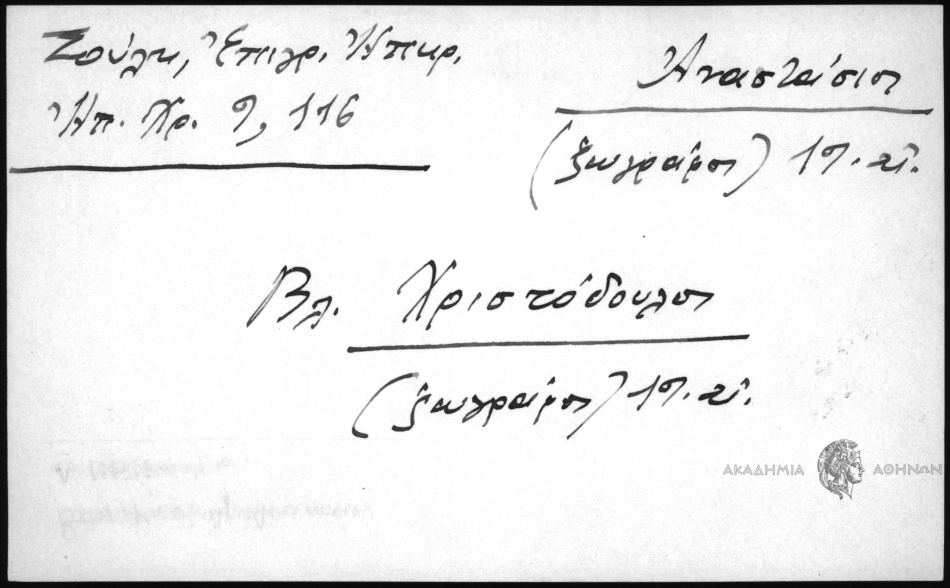 Σούλη, Ἐπιγρ. Ἠπειρ.
Ἠπ. Χρ. 9, 116
Ἀναστάσιος
(ζωγράφος) 19. αἰ.
Βλ. Χριστόδουλος
(ζωγράφος) 19. αἰ.
ΑΚΑΔΗΜΙΑ ΑΘΗΝΩΝ